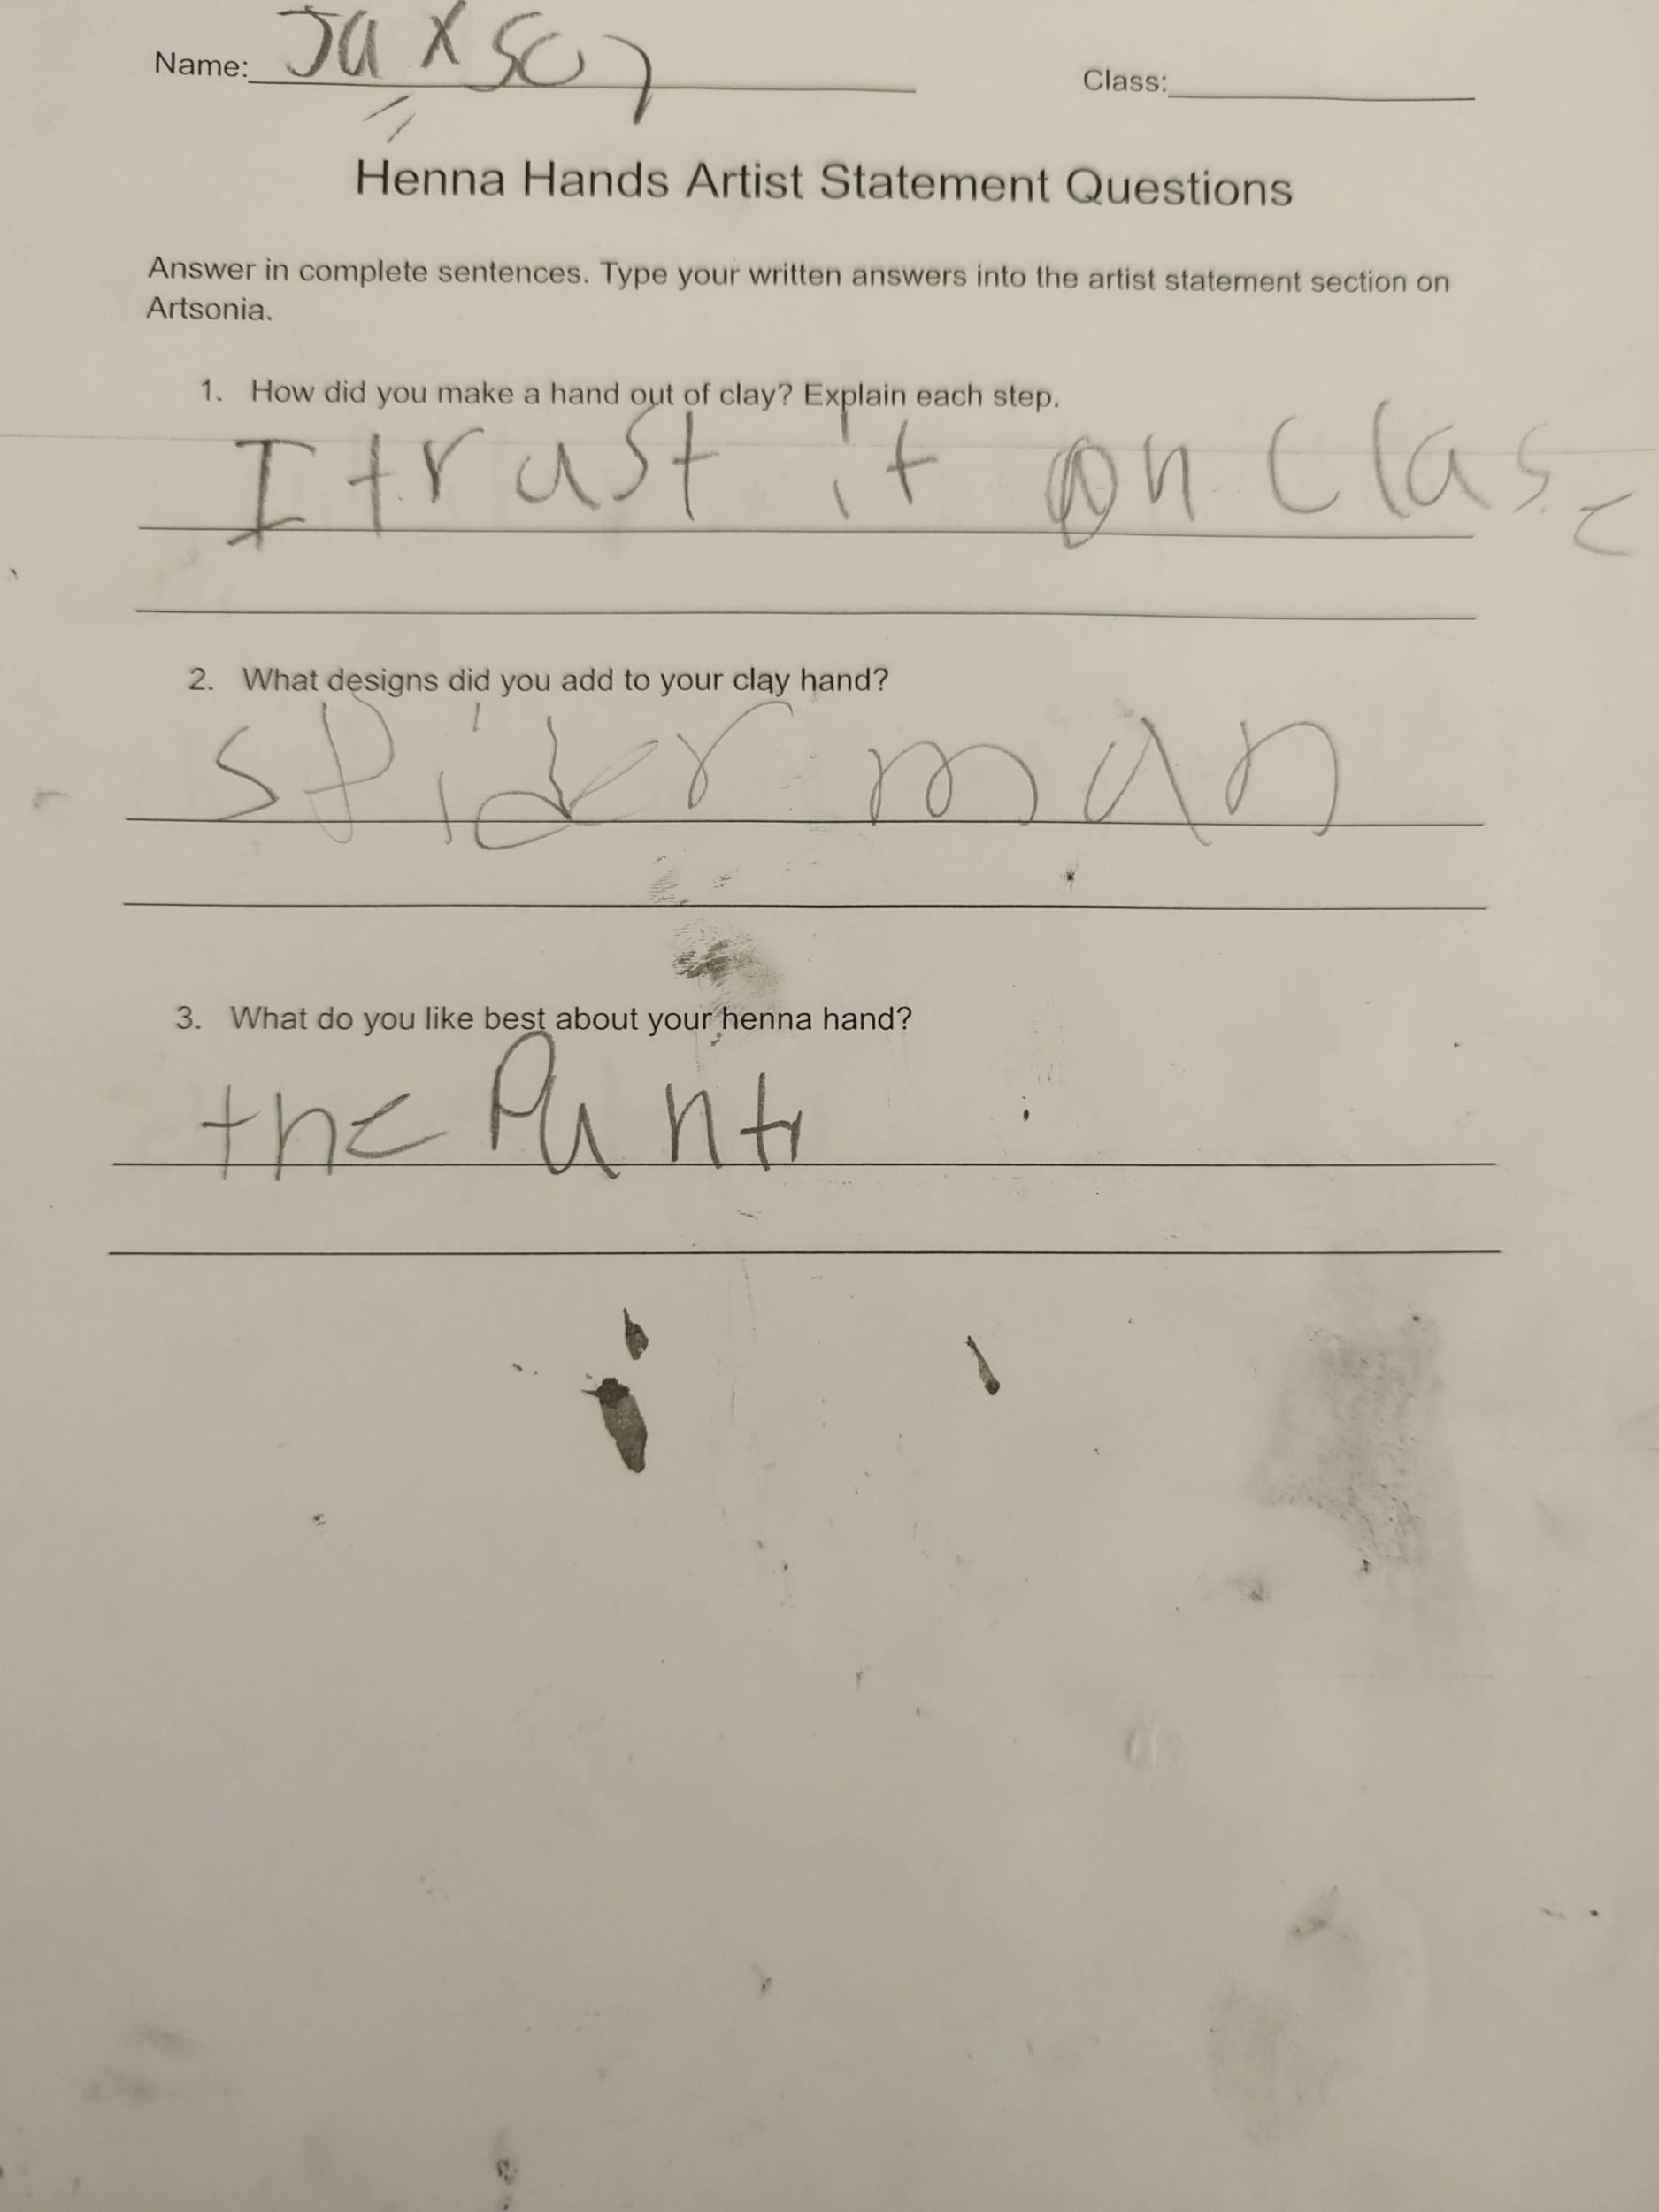 Name: Jaxson Class:
Henna Hands Artist Statement Questions
Answer in complete sentences. Type your written answers into the artist statement section on
Artsonia.
1. How did you make a hand out of clay? Explain each step.
I trust it on clas
2. What designs did you add to your clay hand?
spider man
3. What do you like best about your henna hand?
the